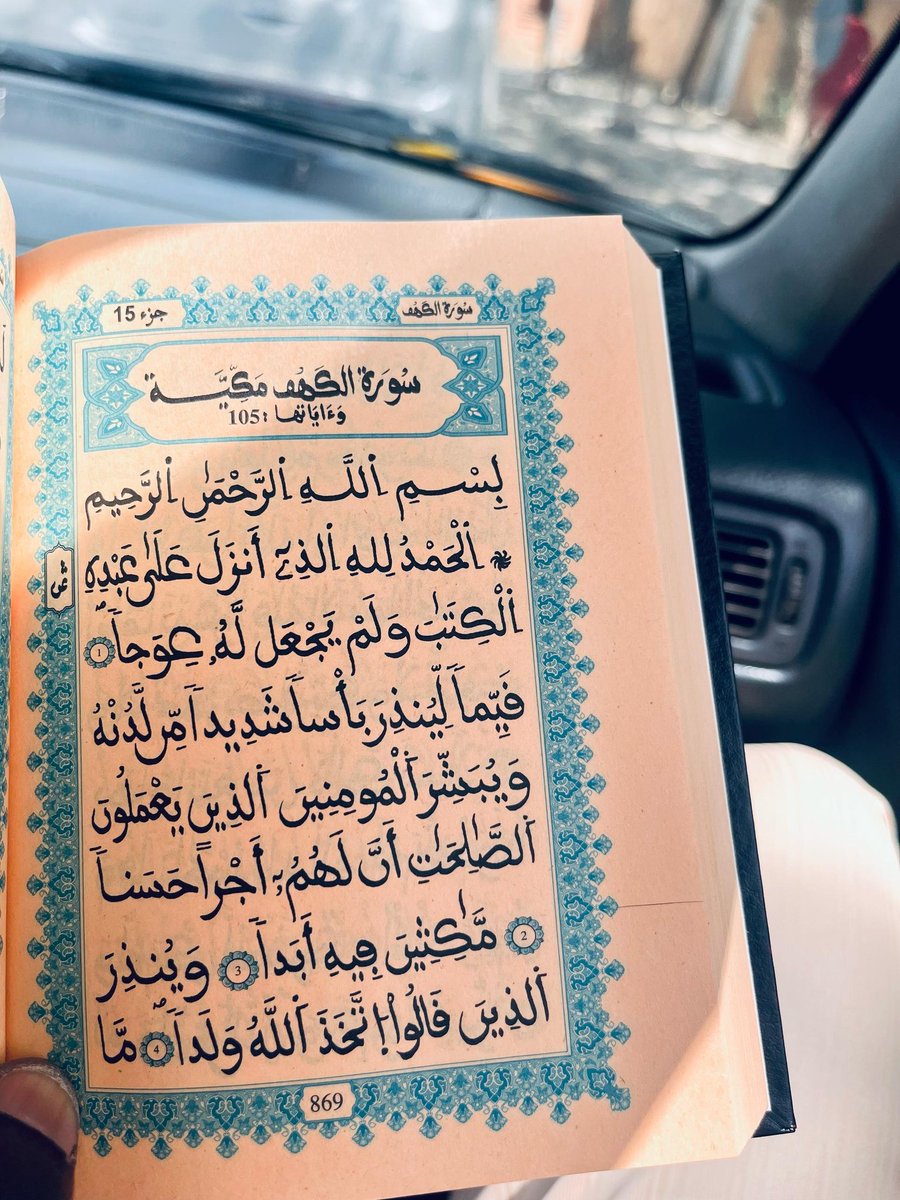 سُورَةُ الكَهْفِ
جزء 15
سُورَةُ الكَهْفِ مَكِّيَّة
وَءَايَاتُهَا : 105
بِسْمِ اِ۬للَّهِ اِ۬لرَّحْمَٰنِ اِ۬لرَّحِيمِ
۞ اَ۬لْحَمْدُ لِلهِ اِ۬لذِےٓ أَنزَلَ عَلَىٰ عَبْدِهِ
ثمن
اِ۬لْكِتَٰبَ وَلَمْ يَجْعَل لَّهُۥ عِوَجاٗۖ 1
قَيِّماٗ لِّيُنذِرَ بَأْساٗ شَدِيداٗ مِّن لَّدُنْهُ
وَيُبَشِّرَ اَ۬لْمُومِنِينَ اَ۬لذِينَ يَعْمَلُونَ
اَ۬لصَّٰلِحَٰتِ أَنَّ لَهُمُۥٓ أَجْراً حَسَناٗ
2 مَّٰكِثِينَ فِيهِ أَبَداٗ 3 وَيُنذِرَ
اَ۬لذِينَ قَالُواْ اُ۪تَّخَذَ اَ۬للَّهُ وَلَداٗۖ 4 مَّا
869